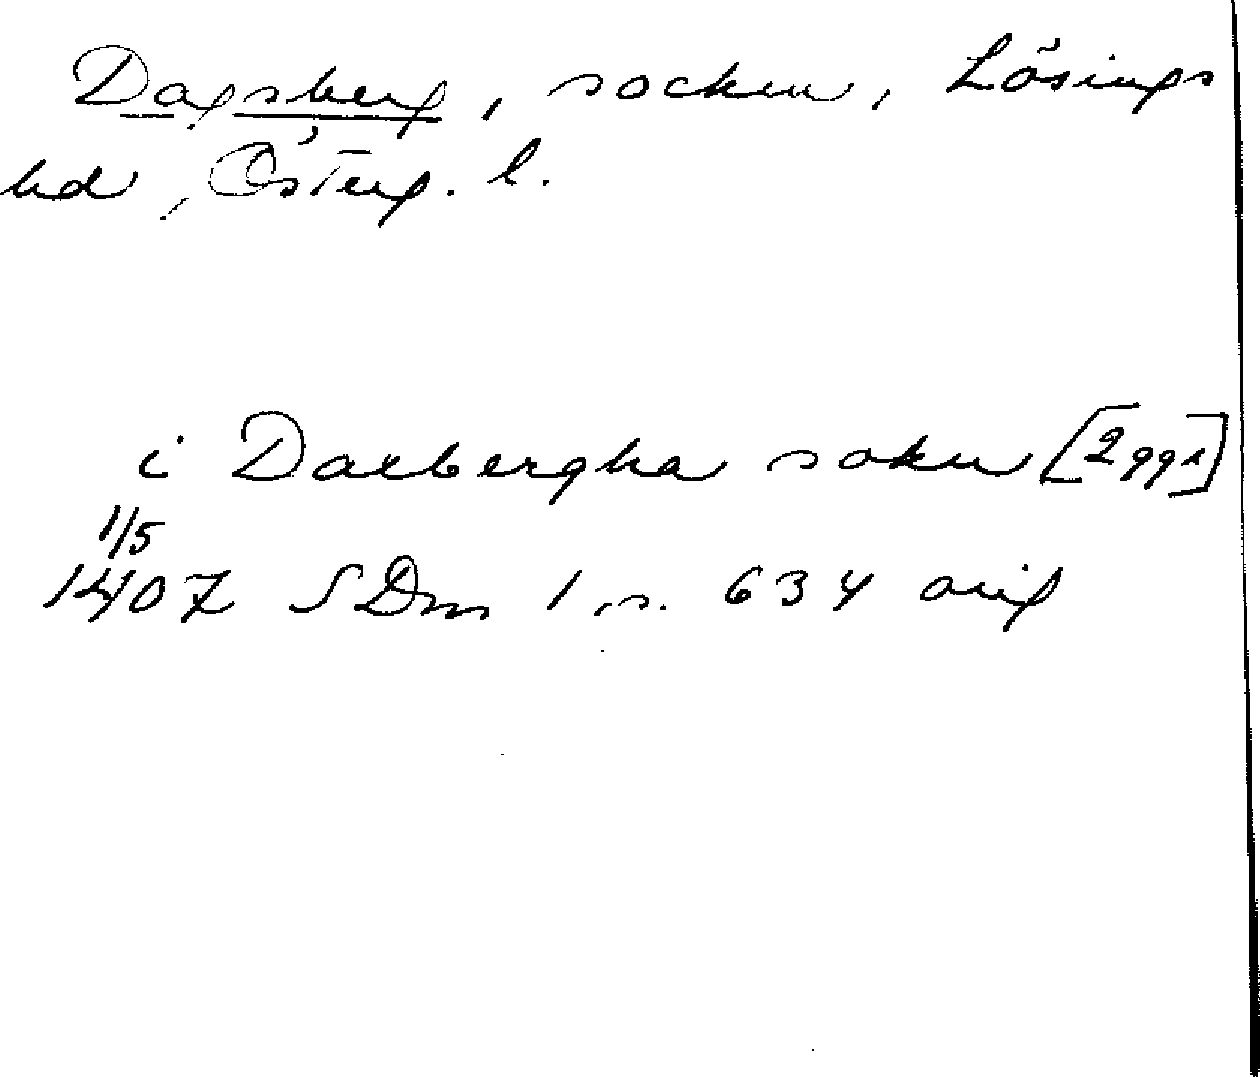 Dagsberg, socken, Lösings
hd, Österg. l.
i Daxbergha sokn [2 ggr]
1/5
1407 SDns 1, s. 634 orig